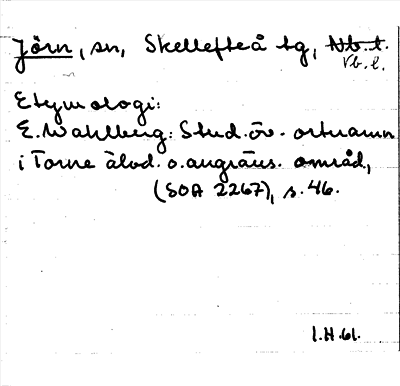 Jörn, sn, Skellefteå tg, Nb. t.
Vb. l.
Etymologi:
E. Wahlberg: Stud. öv. ortnamn
i Torne älvd. o. angräns. område,
(SOA 2267), s. 46.
I.H.61.